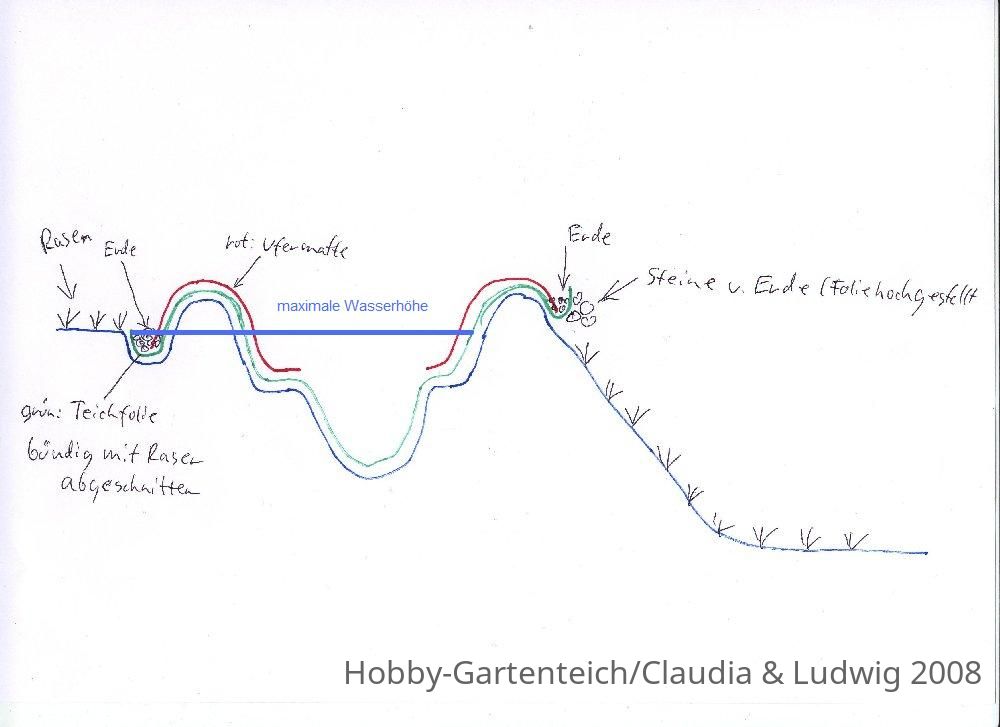 Rasen
Ende
rot: Ufermatte
Ende
Steine u. Erde (Folie hochgestellt
maximale Wasserhöhe
grün: Teichfolie
bündig mit Rasen
abgeschnitten
Hobby-Gartenteich/Claudia & Ludwig 2008